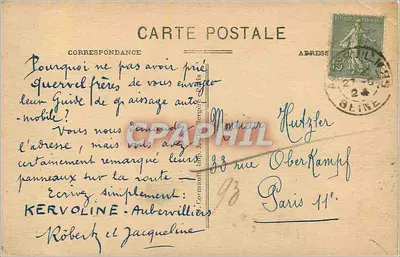 CARTE POSTALE
CORRESPONDANCE
ADRESSE
Pourquoi ne pas avoir prié
Quervel frères de vous envoyer
leur Guide de graissage auto-
mobile?
Vous nous demandez
l'adresse, mais vous avez
certainement remarqué leurs
panneaux sur la route —
Ecrivez simplement:
KERVOLINE - Aubervilliers
Robert et Jacqueline
Monsieur Hutzler
88 rue Oberkampf
Paris 11e
93
SEINE
DELCAMPE